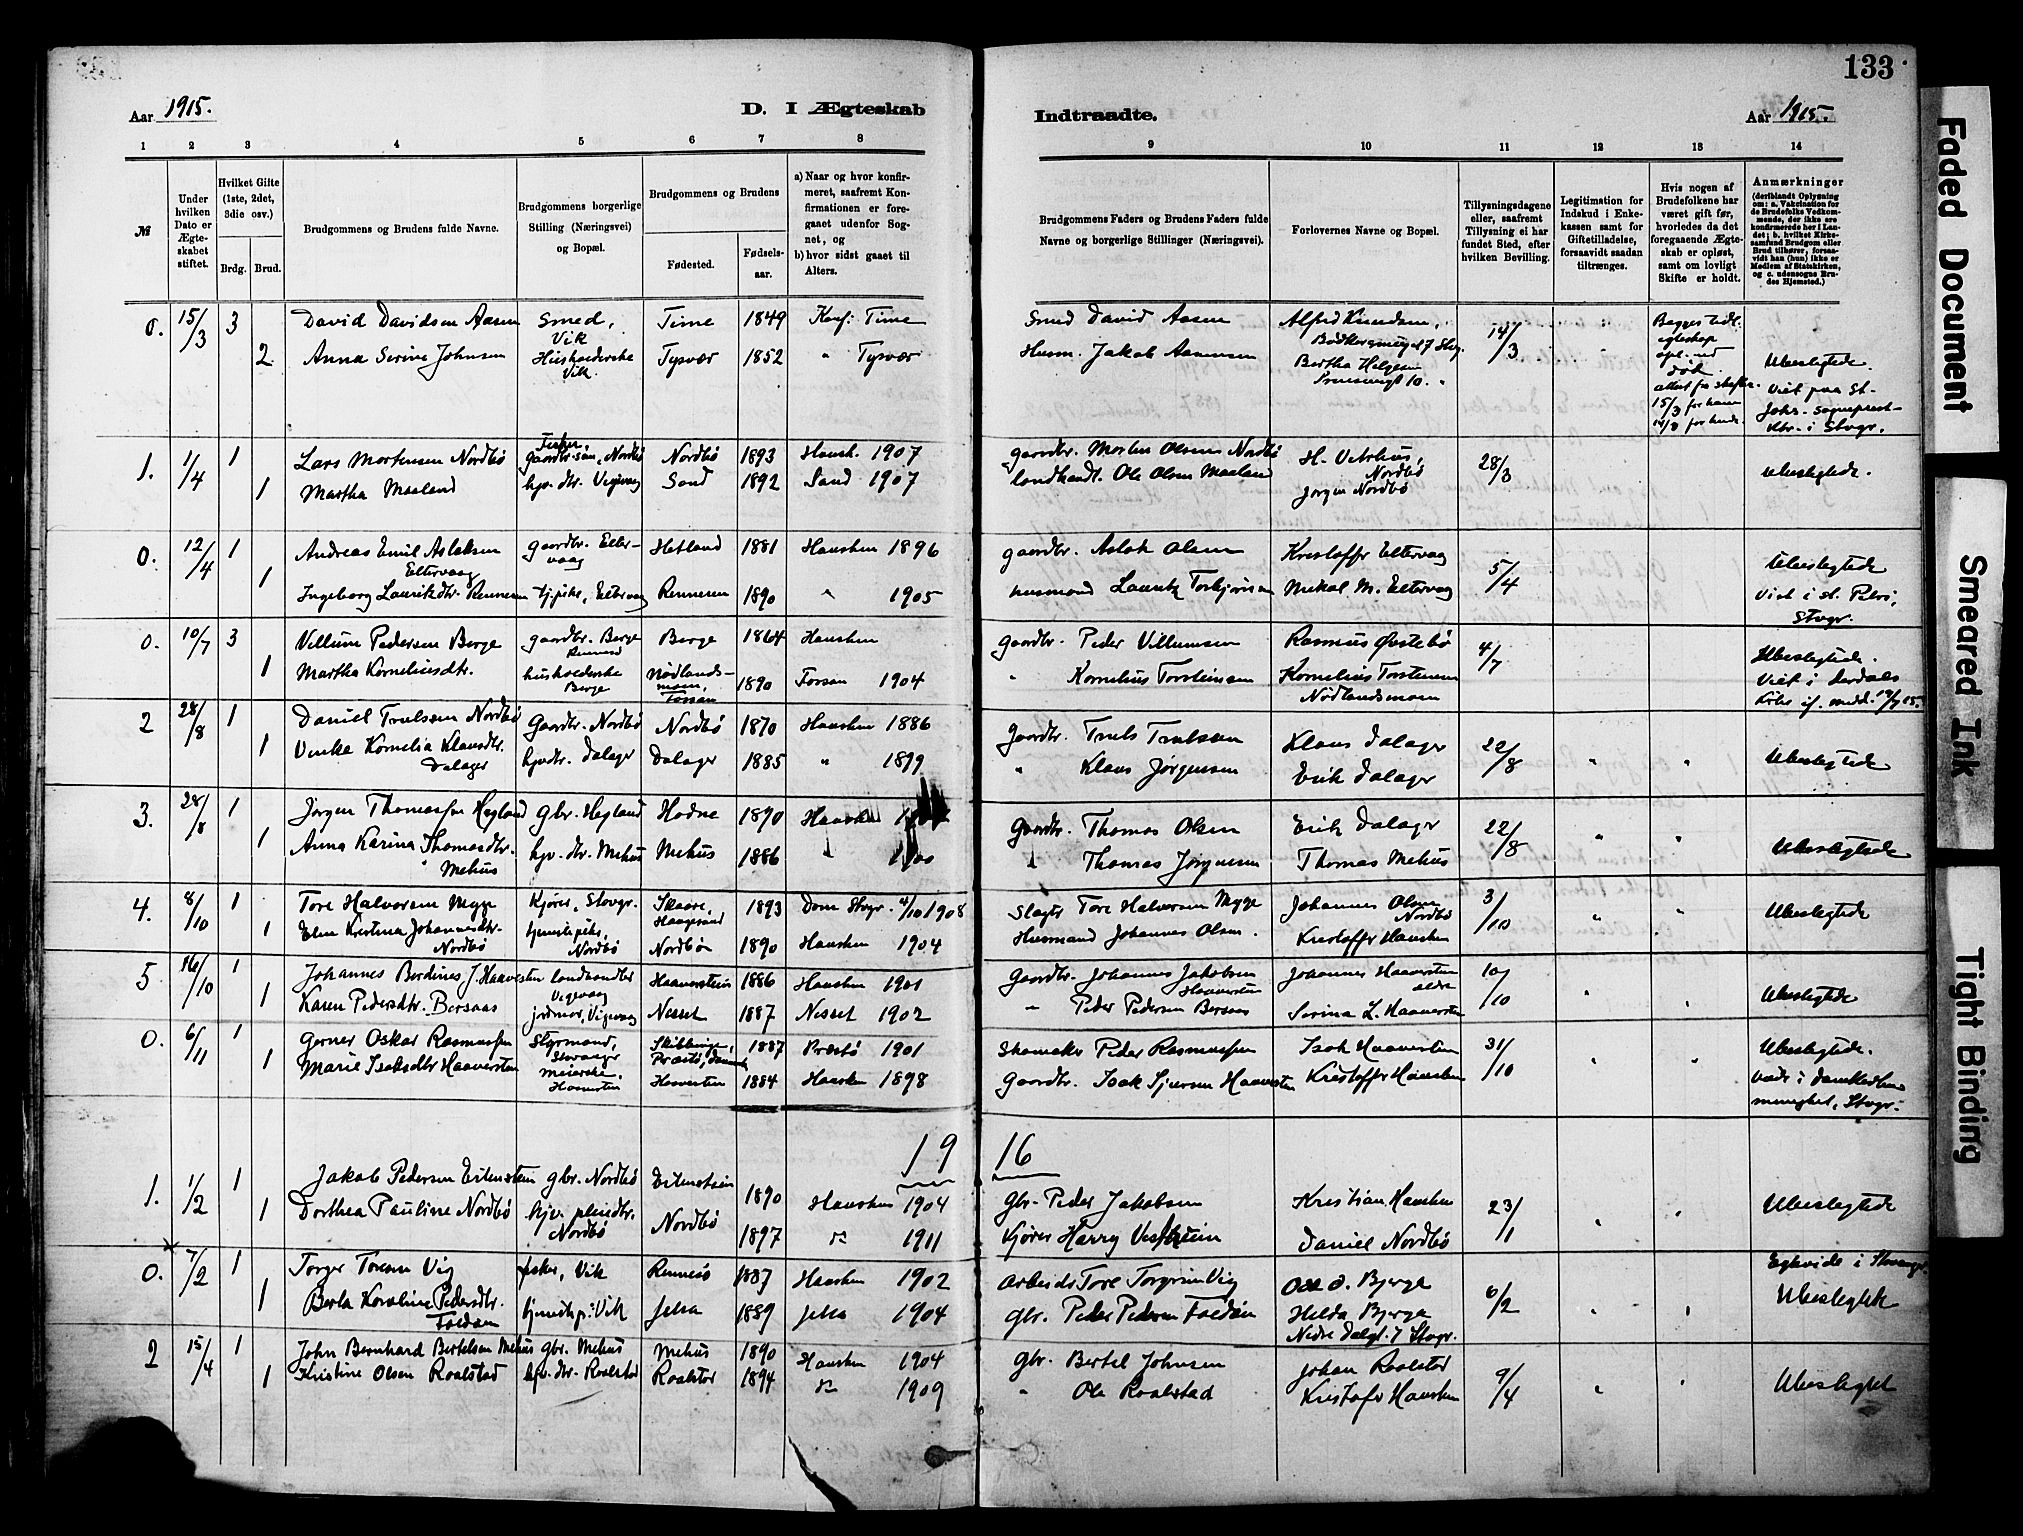 133
Aar 1915.
D. I Ægteskab
Indtraadte.
Aar 1915.
1 2 3 4 5 6 7 8 9 10 11 12 13 14
№
Under hvilken Dato er Ægteskabet stiftet.
Hvilket Gifte (1ste, 2det, 3die osv.)
Brdg. Brud.
Brudgommens og Brudens fulde Navne.
Brudgommens borgerlige Stilling (Næringsvei) og Bopæl.
Brudgommens og Brudens
Fødested. Fødselsaar.
a) Naar og hvor konfirmeret, saafremt Konfirmationen er foregaaet udenfor Sognet, og
b) hvor sidst gaaet til Alters.
Brudgommens Faders og Brudens Faders fulde Navne og borgerlige Stillinger (Næringsvei).
Forlovernes Navne og Bopæl.
Tillysningsdagene eller, saafremt Tillysning ei har fundet Sted, efter hvilken Bevilling.
Legitimation for Indskud i Enkekassen samt for Giftetilladelse, forsaavidt saadan tiltrænges.
Hvis nogen af Brudefolkene har været gift før, hvorledes da det foregaaende Ægteskab er opløst, samt om lovligt Skifte er holdt.
Anmærkninger
(deriblandt Oplysning om: a. Vakcination for de Brudefolks Vedkommende, der ikke ere konfirmerede her i Landet; b. hvilket Kirkesamfund Brudgom eller Brud tilhører, forsaavidt han (hun) ikke er Medlem af Statskirken, og c. udensogns Brudes Hjemsted.)
0. 15/3 3 David Davidsen Aasen Smed, Vik Time 1849 Konf. Time Smed David Aasen Alfred Knudsen, 14/3
2 Anna Serine Johnsen Husholderske Vik. Tysvær 1852 " Tysvær Husm. Jakob Aamusen Bertha Helgesen
Begges tidl. egteskap opl. ved død.
15/3 for ham
Ubeslegtede
Viet paa St. Joh. sogneprest-ktr. i Stvgr.
1. 1/4 1 Lars Mortensen Nordbø Fisker, gaardbr.søn, Nordbø Nordbø 1893 Hausk. 1907 gaardbr. Morten Olsen Nordbø H. Vitshus, Nordbø 28/3
1 Martha Maaland hjv. dtr. Vigevaag Sand 1892 Sand 1907 landhandl. Ole Olsen Maaland Jørgen Nordbø Ubeslegtede.
0. 12/4 1 Andreas Emil Aslaksen Eltervaag gaardbr. Eltervaag Hetland 1881 Hausken 1896 gaardbr. Aslak Olsen Kristoffer Eltervaag 5/4
1 Ingeborg Lauritzdtr. Rennesen tj.pike, Eltervaag Rennesen 1890 " 1905 husmand Lauritz Torbjørnsen Mikal M. Eltervaag
Ubeslegtede
Viet i St. Petri, Stvgr.
0. 10/7 3 Villum Pedersen Berge gaardbr. Berge Berge 1864 Hausken gaardbr. Peder Villumsen Rasmus Østebø 4/7
1 Martha Korneliusdtr. husholderske Berge Nødlandsmoen, Forsan 1890 Forsan 1904 " Kornelius Torsteinsen Kornelius Torsteinsen Nødlandsmoen
Ubeslegtede.
2 28/8 1 Daniel Trulssen Nordbø Gaardbr. Nordbø Nordbø 1870 Hausken 1886 Gaardbr. Truls Trulssen Klaus Dalager 22/8 " "
1 Vinka Kornelia Klausdtr. Dalager hjvdtr. Dalager Dalager 1885 " 1899 " Klaus Jørgensen Erik Dalager Ubeslegtede
3. 28/8 1 Jørgen Thomassen Hegland gbr. Hegland Hodne 1890 Hausken Gaardbr. Thomas Olsen Erik Dalager 22/8 " "
1 Anna Karina Thomasdtr. Mehus hjv. dtr. Mehus Mehus 1886 " 1900 " Thomas Jørgensen Thomas Mehus Ubeslegtede
4. 8/10 1 Tore Halvorsen Mygge Kjører, Stvgr. Skaare, Haugesund 1893 Dom Stvgr. 4/10 1908 Slagter Tore Halvorsen Mygge Johannes Olsen Nordbø 3/10 " "
1 Elen Kristina Johannesdtr. Nordbø tjenestepike, Nordbø Nordbø 1890 Hausken 1904 Husmand Johannes Olsen. Kristoffer Hausken Ubeslegtede
5 16/10 1 Johannes Berdines J. Haaverstein landhandler Vigevaag Haaverstein 1886 Hausken 1901 Gaardbr. Johannes Jakobsen Haaverstein Johannes Haaverstein eldre 10/10 " "
1 Karen Pedersdtr. Bersaas jordmor, Vigevaag Nesset 1887 Nesset 1902 " Peder Pedersen Bersaas Serina L. Haaverstein Ubeslegtede
0. 6/11 1 Gerner Oskar Rasmussen Styrmand, Stavanger Skibbinge, Præstø, Danmark 1887 Præstø 1901 Skomaker Peder Rasmussen Isak Haaverstein 31/10 " "
1 Marie Isaksdtr Haaverstein meierske, Haaverstein Haaverstein 1884 Hausken 1898 Gaardbr. Isak Sjursen Haaverstein Kristoffer Hausken
Ubeslegtede.
menighet, Stvgr.
1916
1. 1/2 1 Jakob Pedersen Eitenstein gbr. Nordbø Eitenstein 1890 Hausken 1904 Gbr. Peder Jakobsen Kristian Hausken 23/1 " "
1 Dorthea Pauline Nordbø hjv. pleiedtr. Nordbø Nordbø 1897 " 1911 Kjører Harry Vestheim Daniel Nordbø Ubeslegtede
0. 7/2 1 Torger Toresen Vig fisker, Vik Rennesø 1887 Hausken 1902 Arbeids. Tore Torgersen Vig Ole O. Bjerge 6/2 " "
1 Berta Karoline Pedersdtr. Foldøen tjenestep. Vik Jelsa 1889 Jelsa 1904 Gbr. Peder Pedersen Foldøen Helda Bjerge Nedre Dalgt. 7 Stvgr.
Egtevide i Stavanger.
Ubeslegtede
2 15/4 1 John Bernhard Bertelsen Mehus gbr. Mehus Mehus 1890 Hausken 1904 Gbr. Bertel Johnsen Johan Roalstad 9/4 " "
1 Kristine Olsen Roalstad hjv. dtr. Roalstad Roalstad 1894 " 1909 " Ole Roalstad Kristoffer Hausken Ubeslegtet
Faded Document
Smeared Ink
Tight Binding